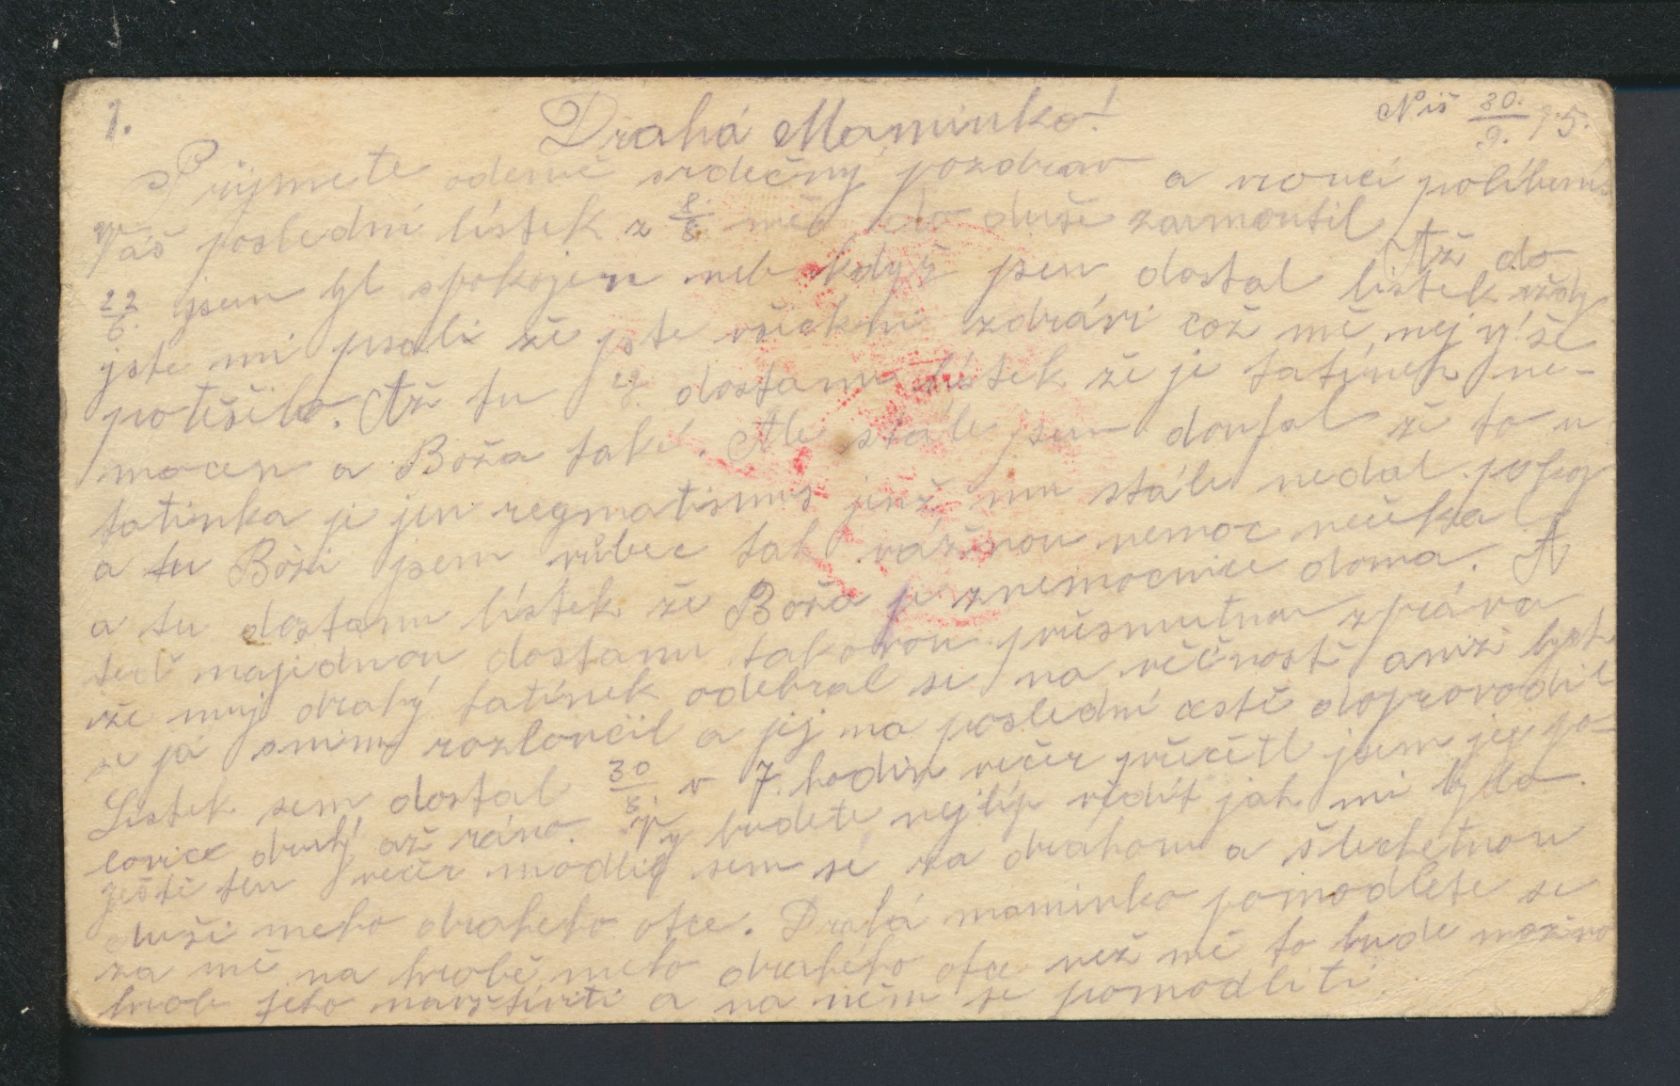 1.
Drahá Maminko!
Niš 30./9. 15.
Přijmete odemě srdečný pozdrav a vroucí políbení
Váš poslední lístek z 8./8. mě do duše zarmoutil Až do
22/6. jsem byl spokojen neb když jsem dostal lístek vždy
jste mi psali že jste všickni zdrávi což mě nejvýše
potěšilo. Až tu dostanu lístek že je tatínek ne-
mocen a Boža také. Ale stále jsem doufal že to u
tatínka je jen regmatismus jenž mu stále nedal pokoj
a tu Boži jsem vůbec tak vážnou nemoc nečekal
a tu dostanu lístek že Boža je z nemocnice doma. A
teď najednou dostanu takovou přesmutnou zpráva
že můj drahý tatínek odebral se na věčnost aniž bych
se já s nim rozloučil a jej na poslední cestě doprovodil
Lístek sem dostal 30/8. v 7. hodin večer přečetl jsem jej po-
lovice druhý až ráno. Vy budete nejlíp vědít jak mi bylo.
Ještě ten večer modlil sem se za drahou a šlechetnou
duši meho draheho otce. Drahá maminko pomodlete se
za mě na hrobě meho drahého otce než mě to bude možno
hrob jeho navštíviti a na něm se pomodliti.